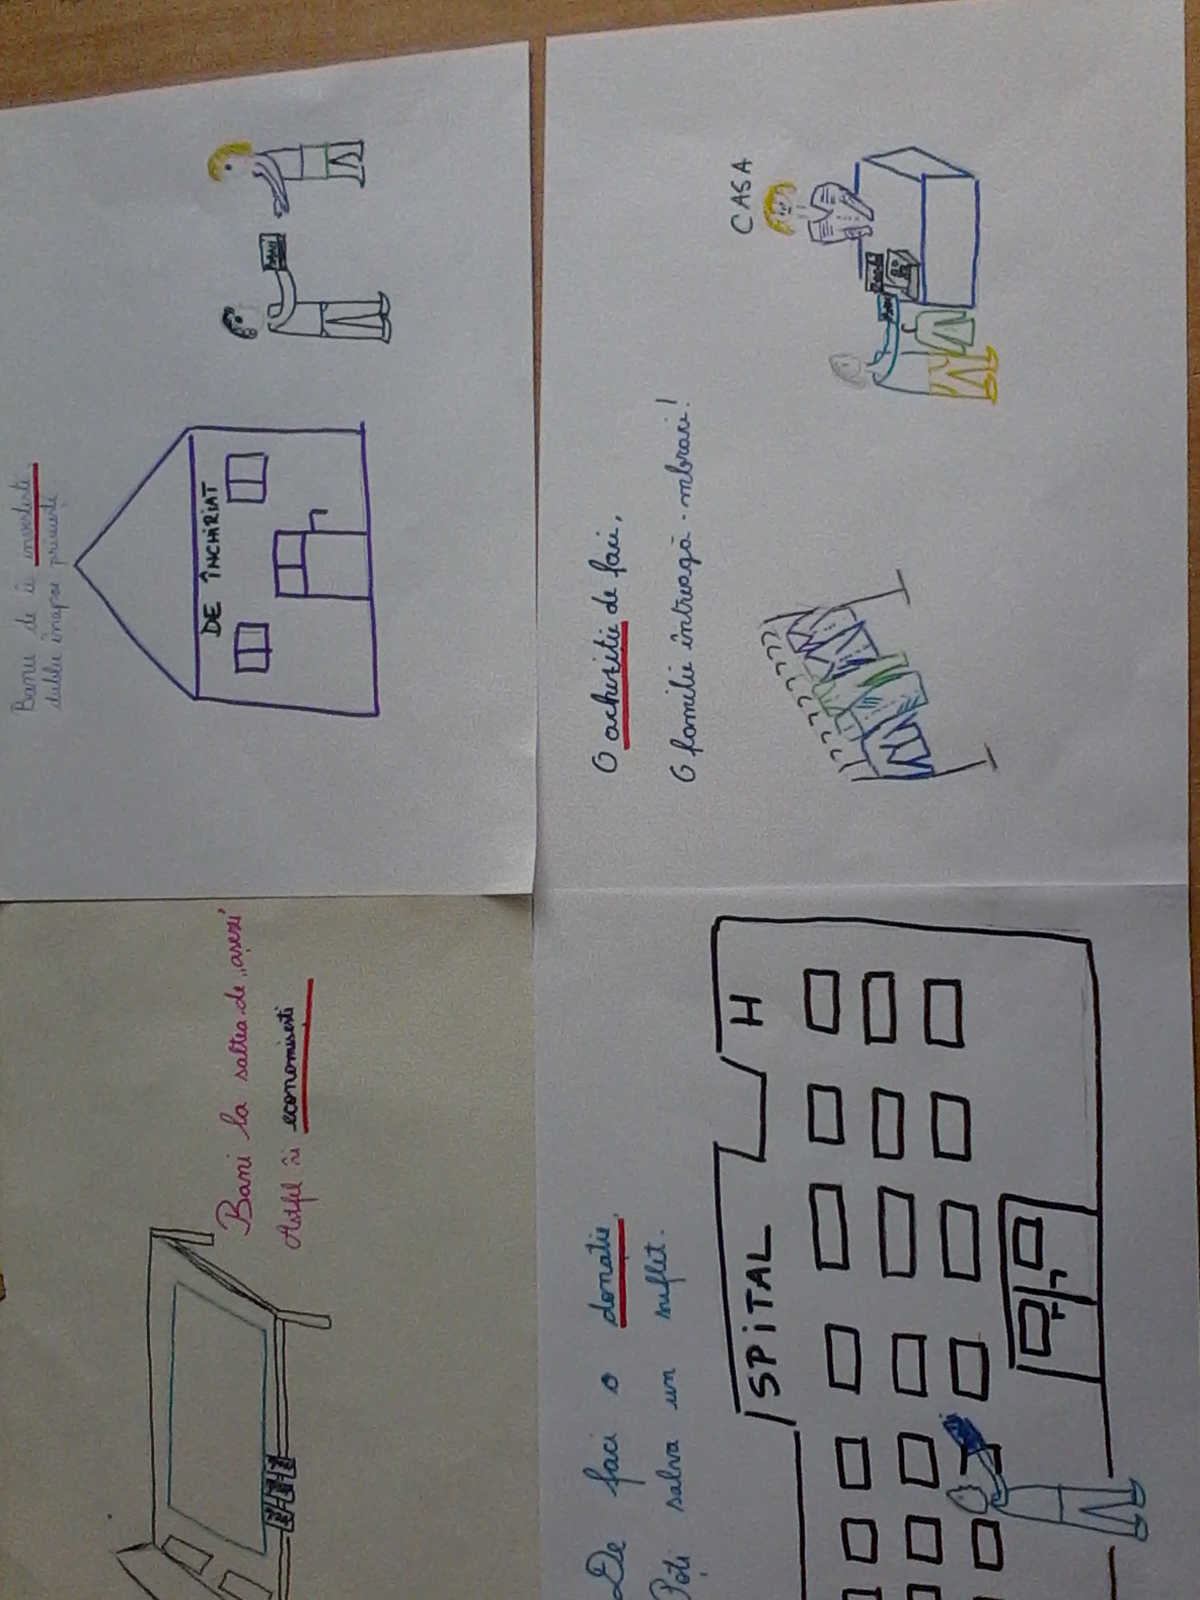 Bani la saltea de „așezi”
Astfel îi economisești
Banii de îi investești,
dublu înapoi primești
DE ÎNCHIRIAT
De faci o donație,
Poți salva un suflet.
SPITAL
H
O achiziție de faci,
O familie întreagă - mbraci!
CASA